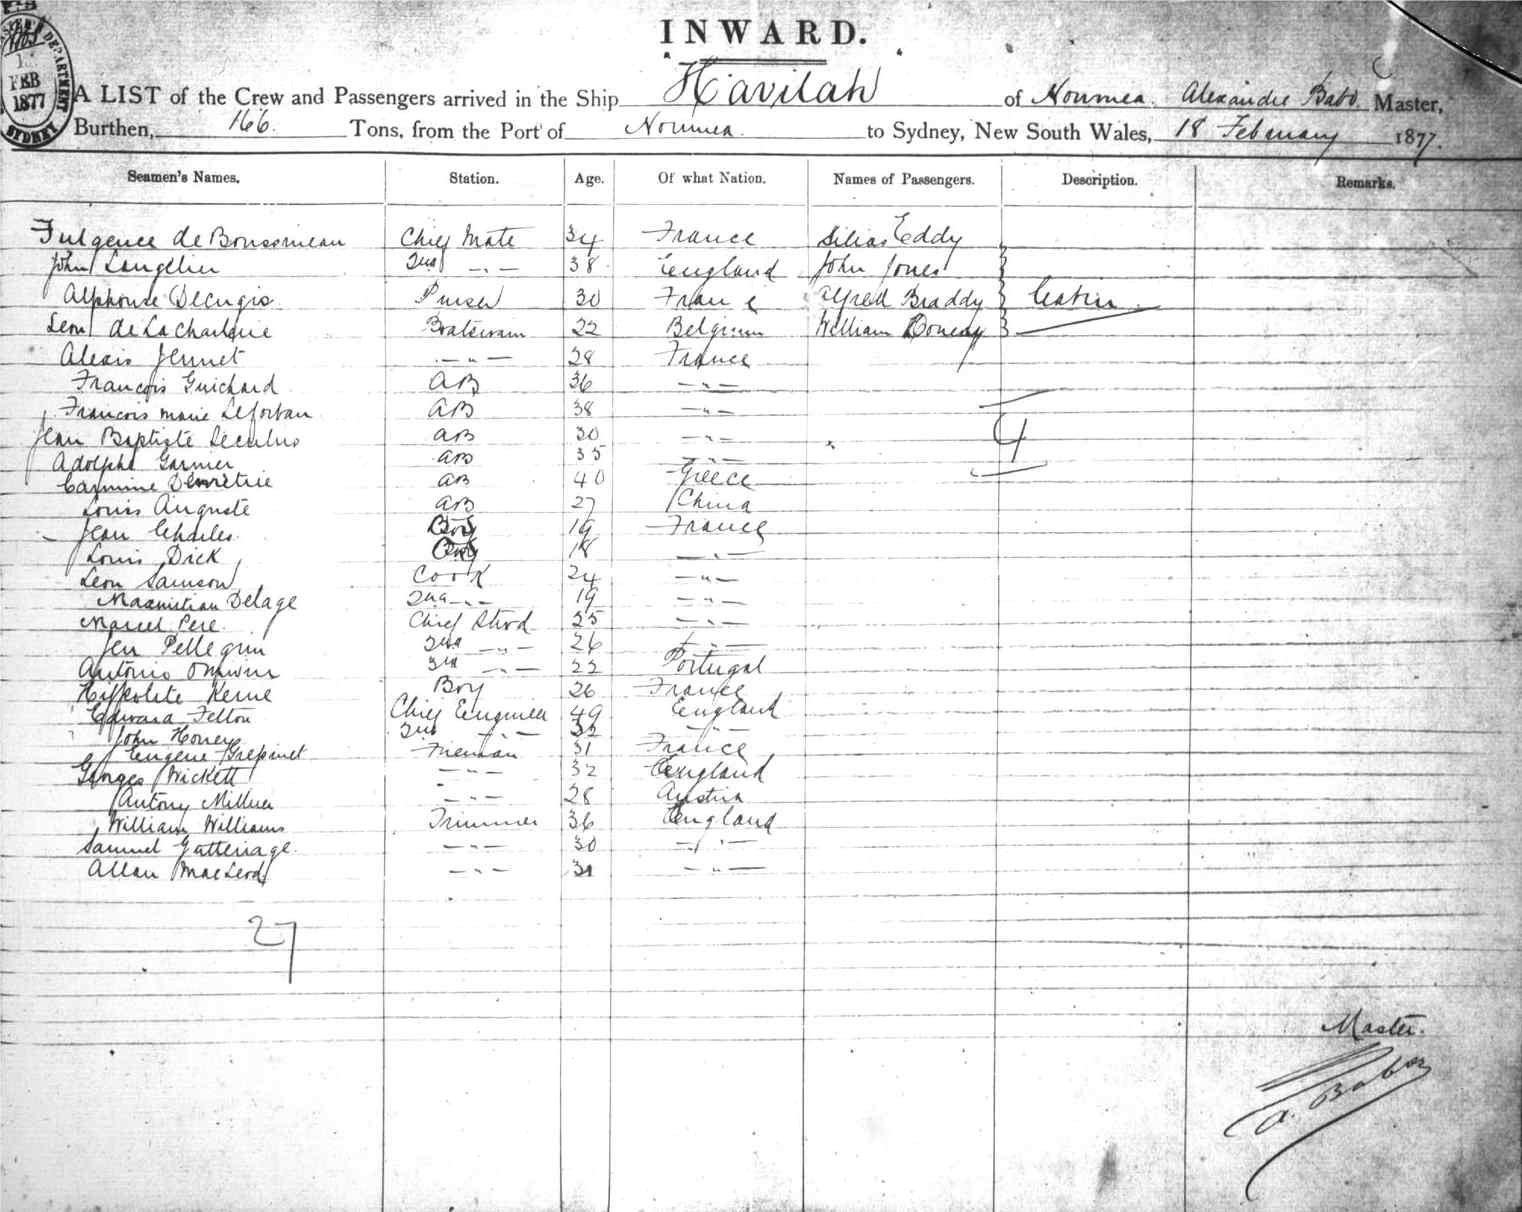 FEB
1877
SYDNEY
INWARD.
A LIST of the Crew and Passengers arrived in the Ship Havilah of Noumea Alexandre Master,
Burthen, 166 Tons, from the Port of Noumea to Sydney, New South Wales, 18 February 1877.
Seamen's Names. Station. Age. Of what Nation. Names of Passengers. Description. Remarks.
Fulgence de Chief Mate 34 France Eddy
John Langelier 2nd -"- 38 England John Jones
Alphonse Decugis Purser 30 France Alfred Braddy Cabin
Leon 22 Belgium William
Alexis Jennet -"- 28 France
Francois Guichard AB 36 -"-
Francois Marie AB 38 -"-
Jean Baptiste AB 30 -"-
Adolphe Garnier AB 35 -"-
Carmine Demetrie AB 40 Greece
4
Louis Auguste AB 27 China
Jean Charles Boy 19 France
Louis Dick Boy 18 -"-
Leon Samson Cook 24 -"-
Delage 2nd -"- 19 -"-
Marcel Pere Chief Stwd 25 -"-
Pellegrin 2nd -"- 26 -"-
Antonio 3rd -"- 22 Portugal
Hippolite Kerne Boy 26 France
Edward Felton Chief Engineer 49 England
John Honey 2nd -"- -"-
Eugene Fireman 31 France
Georges Wickett -"- 32 England
Antony -"- 28 Austria
William Williams Trimmer 36 England
Samuel Gutteriage -"- 30 -"-
Allan MacLeod -"- -"-
27
Master.
A.